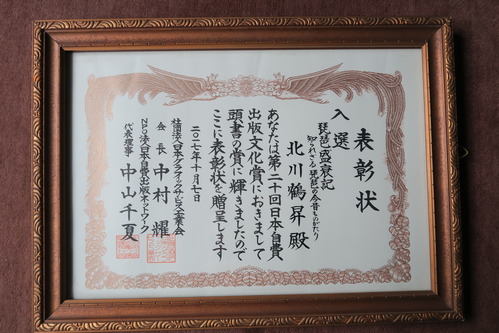 表彰状
入選
琵琶盛衰記
知られざる琵琶の今昔ものがたり
北川鶴昇殿
あなたは第二十回日本自費
出版文化賞におきまして
頭書の賞に輝きましたので
ここに表彰状を贈呈します
二〇一七年十月七日
社団法人日本グラフィックサービス工業会
会長 中村耀
NPO法人日本自費出版ネットワーク
代表理事 中山千夏